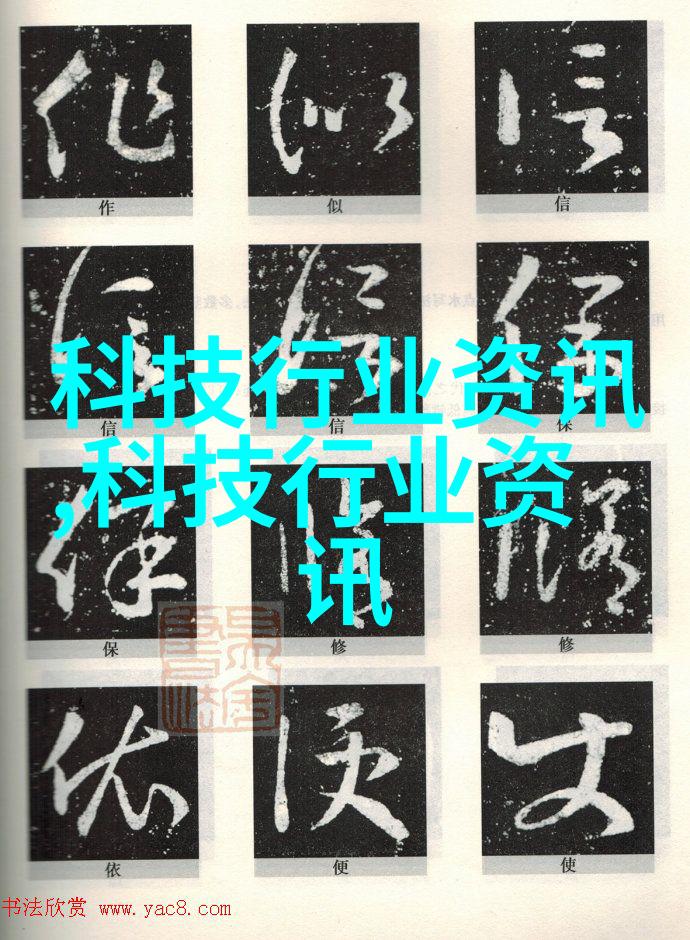 作 似 信
信 信 保
科技行业资讯
,科技行业资
讯
保 修 修
依 便 使
书法欣赏 www.yac8.com